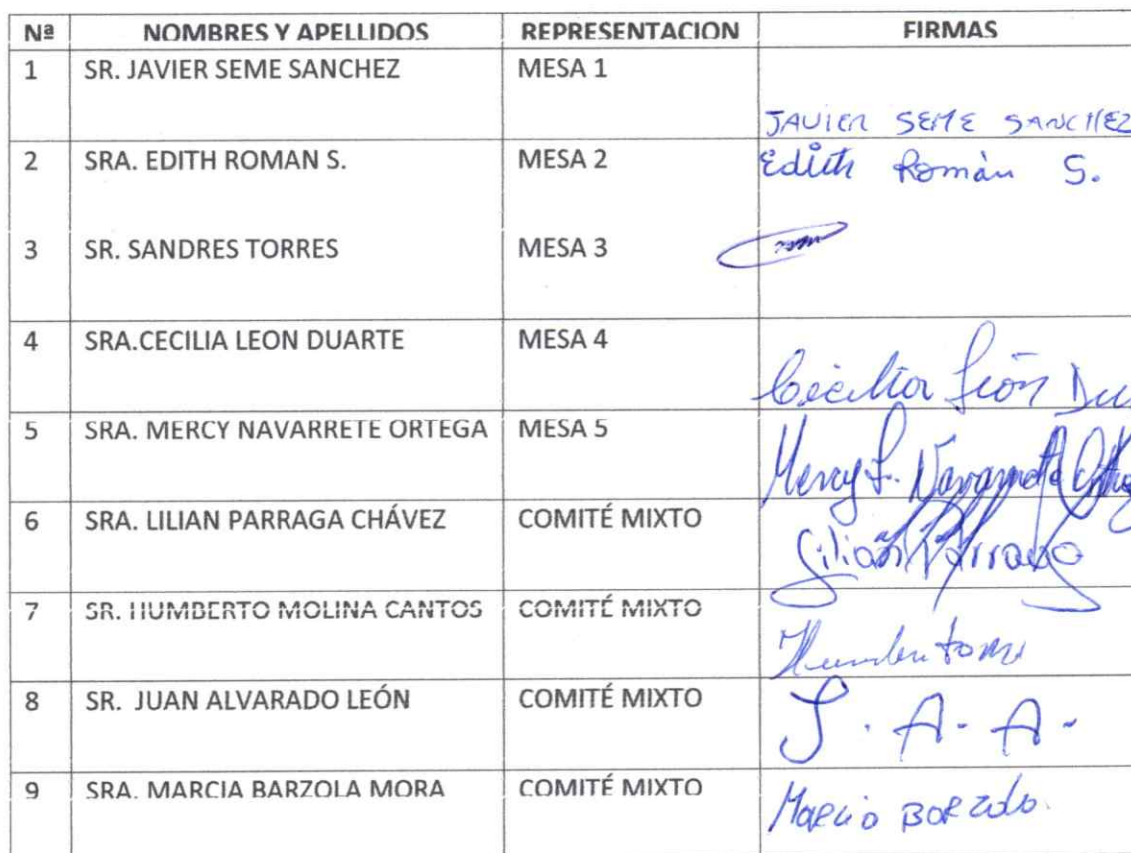 Nª NOMBRES Y APELLIDOS REPRESENTACION FIRMAS
1 SR. JAVIER SEME SANCHEZ MESA 1
JAVIER SEME SANCHEZ
2 SRA. EDITH ROMAN S. MESA 2 Edith Román S.
3 SR. SANDRES TORRES MESA 3
4 SRA.CECILIA LEON DUARTE MESA 4
Cecilia León Du
5 SRA. MERCY NAVARRETE ORTEGA MESA 5
Mercy
6 SRA. LILIAN PARRAGA CHÁVEZ COMITÉ MIXTO
Lilian Parraga
7 SR. HUMBERTO MOLINA CANTOS COMITÉ MIXTO
8 SR. JUAN ALVARADO LEÓN COMITÉ MIXTO
J. A. A.
9 SRA. MARCIA BARZOLA MORA COMITÉ MIXTO
Marcia BARzola